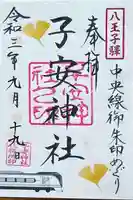 八王子驛
中央線御朱印めぐり
奉拝
子安神社
令和三年九月十九日